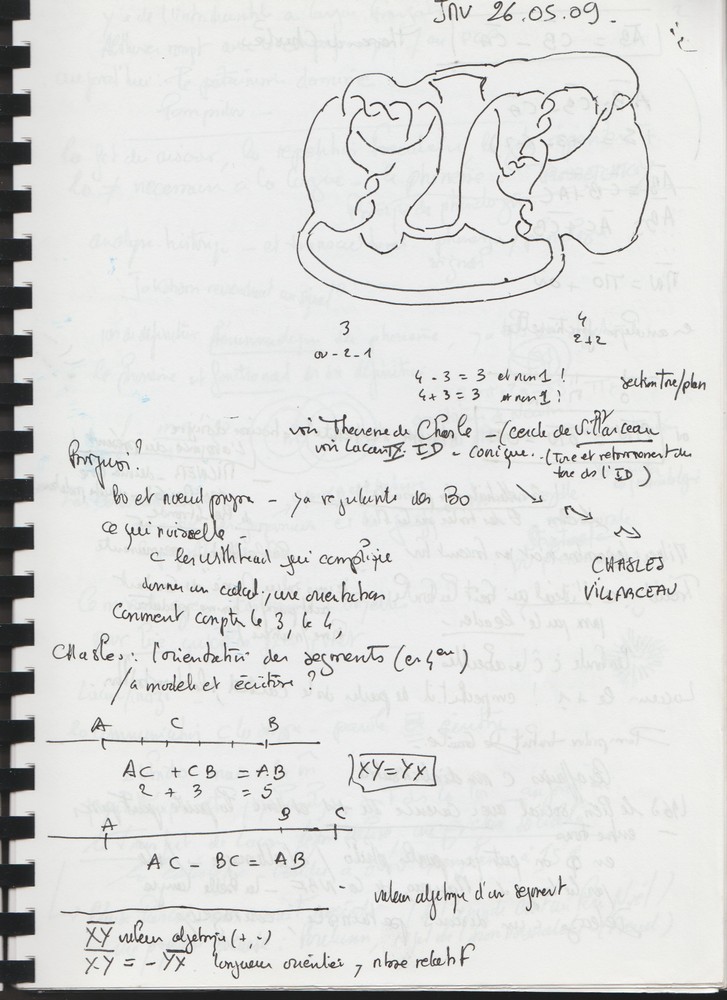 JMV 26.05.09.
3
ou - 2 - 1
4
2+2
4 - 3 = 3 et non 1 !
4 + 3 = 3 et non 1 !
section Tore/plan
voir Theoreme de Chasle - (cercle de Villarceau
voir Lacan ID - conique. (Tore et retournement du
tore ds l'ID)
Bo et noeud propre - des Bo
ce qui
c qui complique
donner un calcul, une orientation
Comment compter le 3, le 4,
CHASLES
VILLARCEAU
Chasles : l'orientation des segments (en 4
/a modele et écriture ?
A C B
AC + CB = AB
2 + 3 = 5
XY = YX
A B C
AC - BC = AB
valeur algebrique d'un segment
XY valeur algebrique (+, -)
XY = - YX longueur orientée, nbre relatif